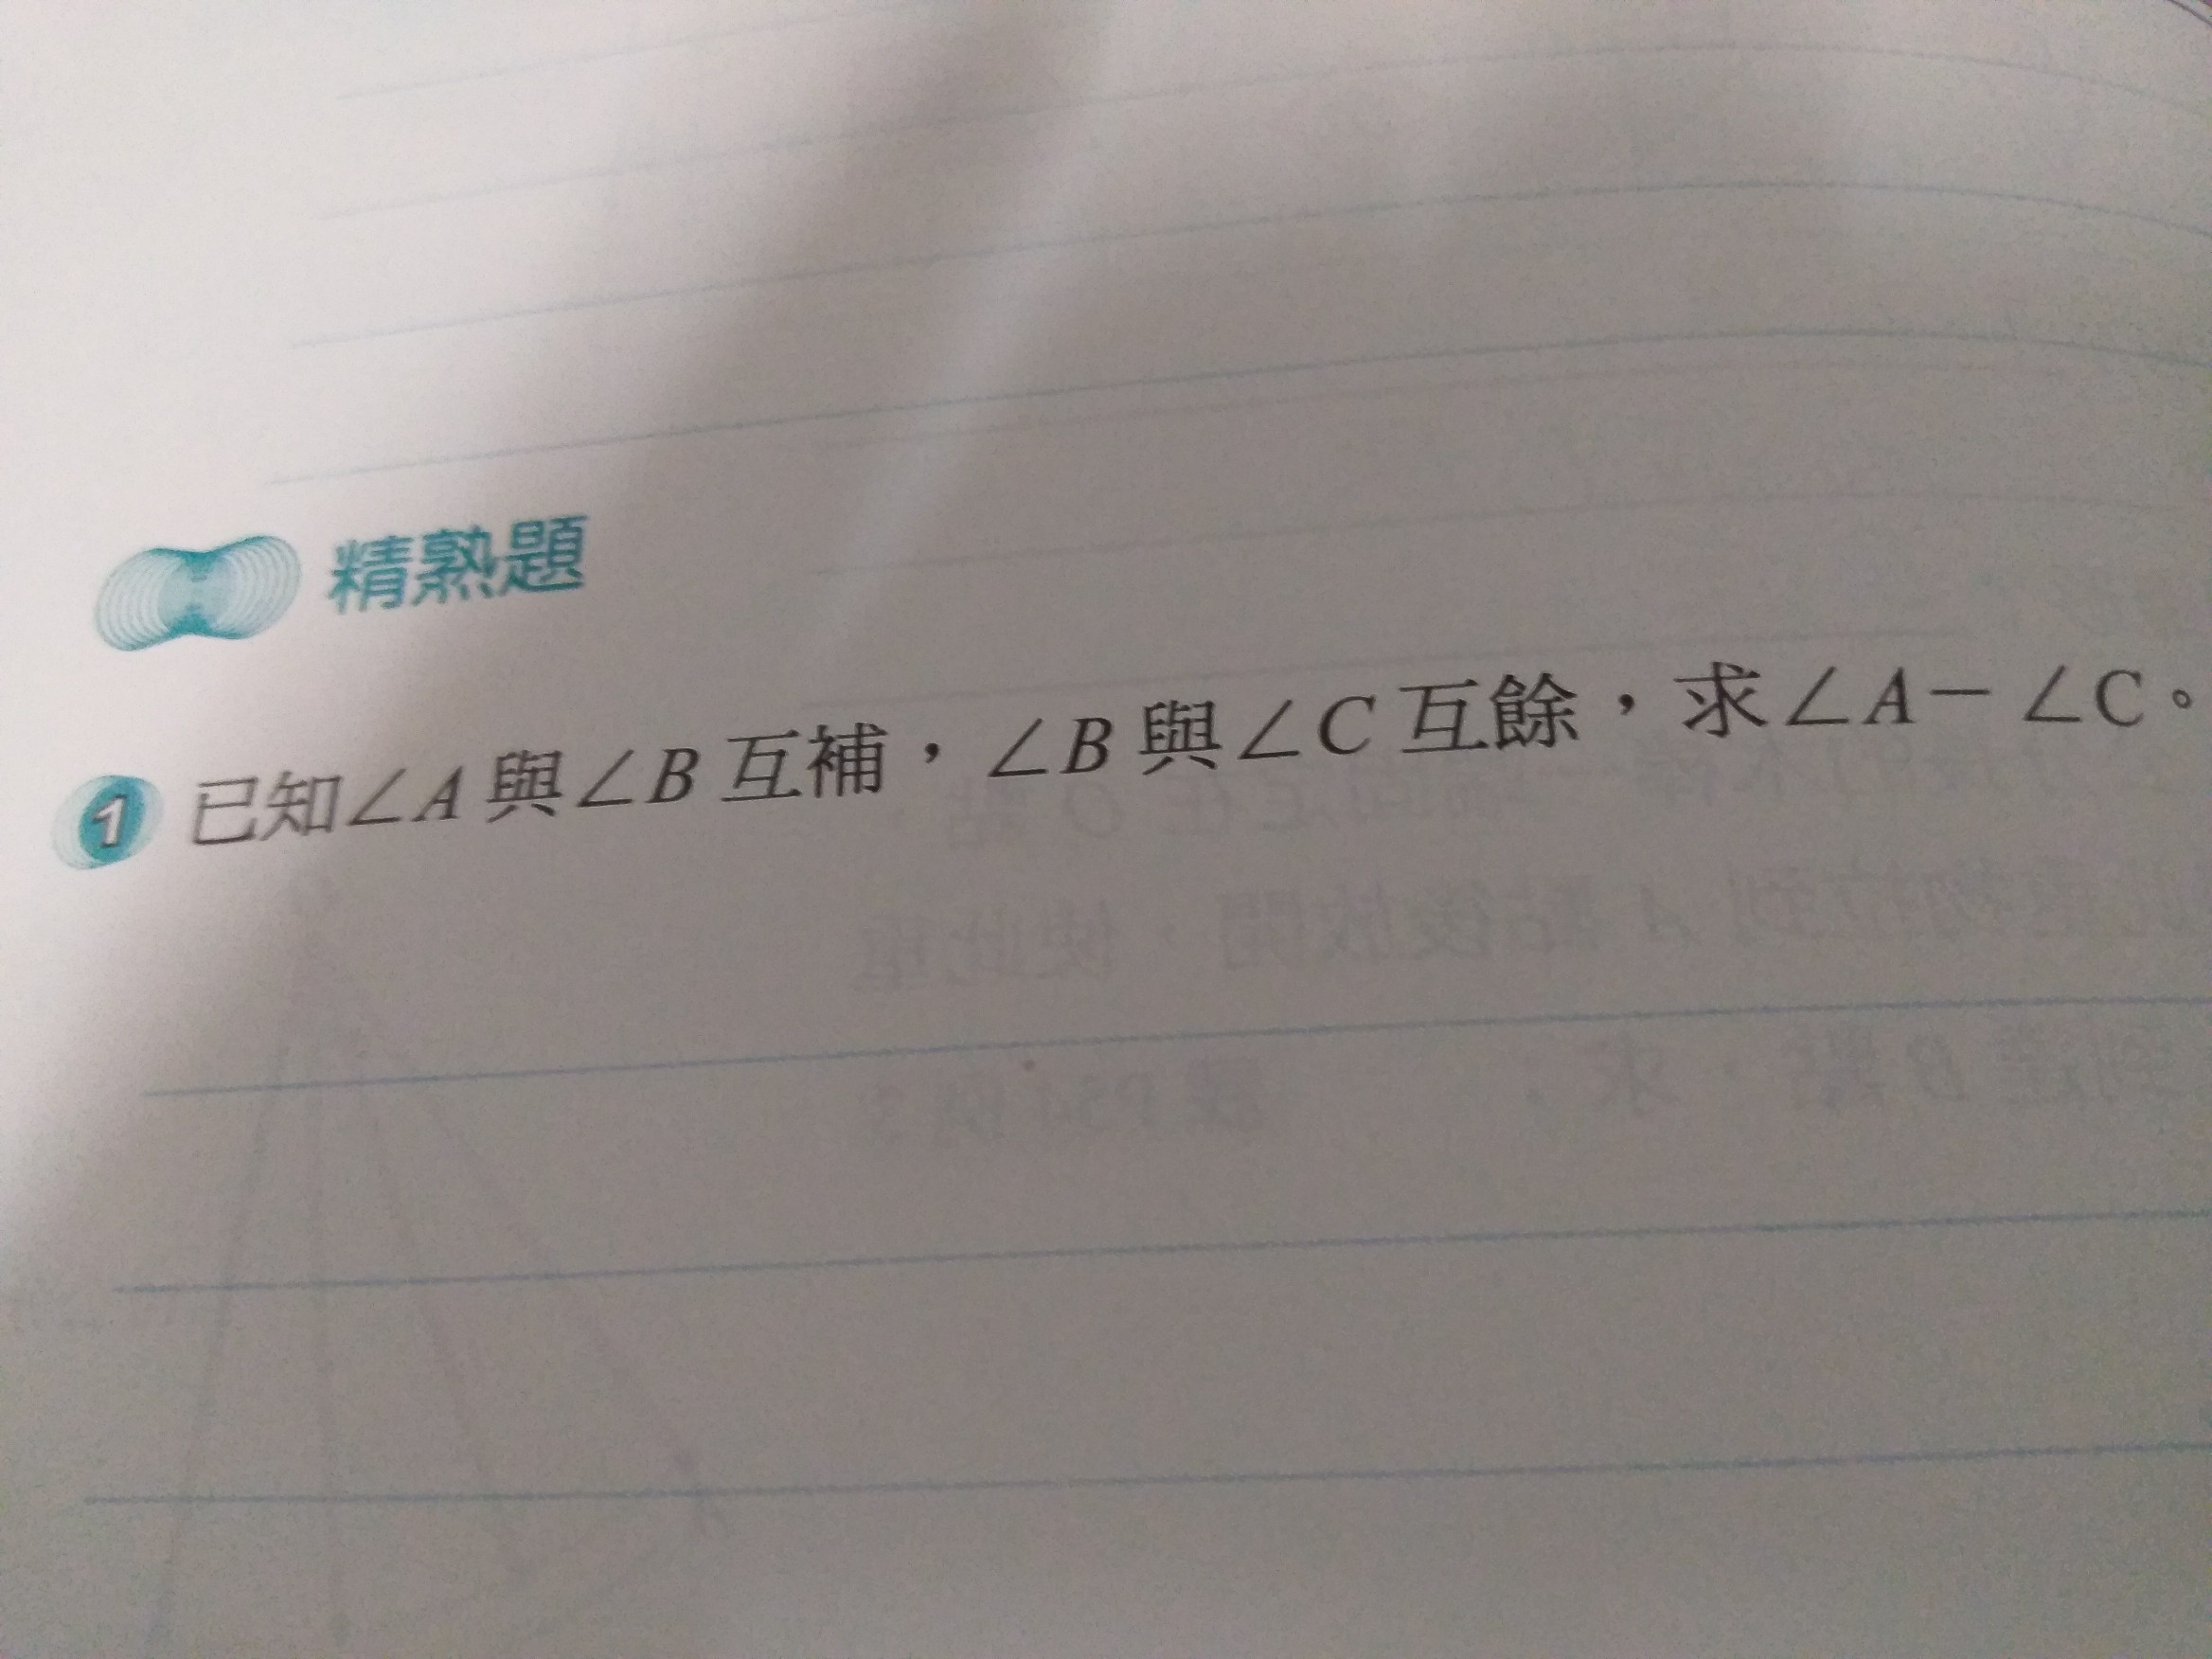 精熟題
1 已知∠A與∠B互補，∠B與∠C互餘，求∠A－∠C。